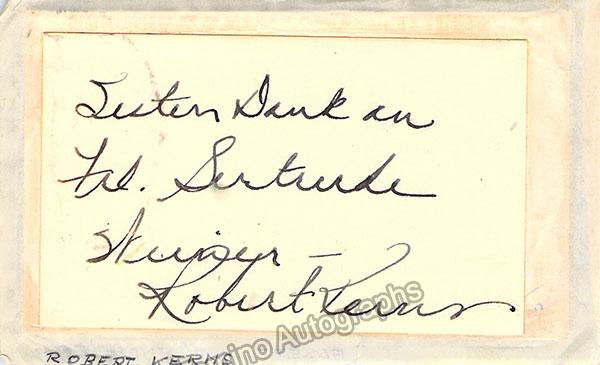 Besten Dank an
Frl. Gertrude
–
Robert Kerns
ino Autographs
ROBERT KERNS